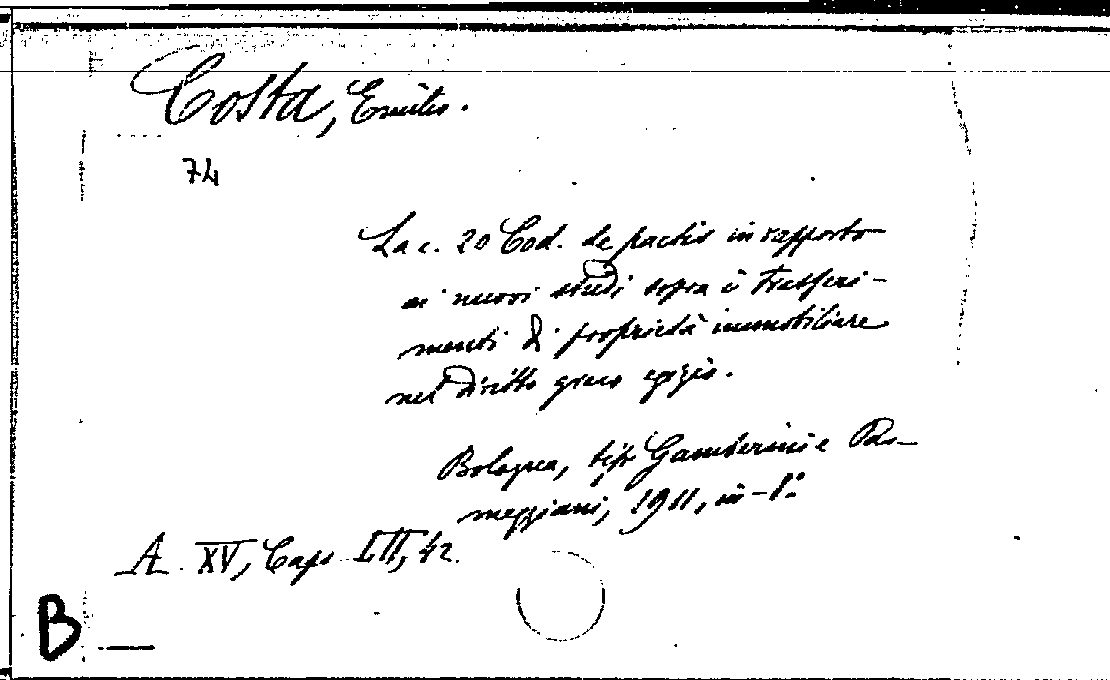 Costa, Emilio.
74
La c. 20 Cod. de pactis in rapporto
ai nuovi studi sopra i trasferi-
menti di proprietà immobiliare
nel diritto greco egizio.
Bologna, tip. Gamberini e Par-
meggiani, 1911, in-8°
A. XV, Caps. III, 42.
B